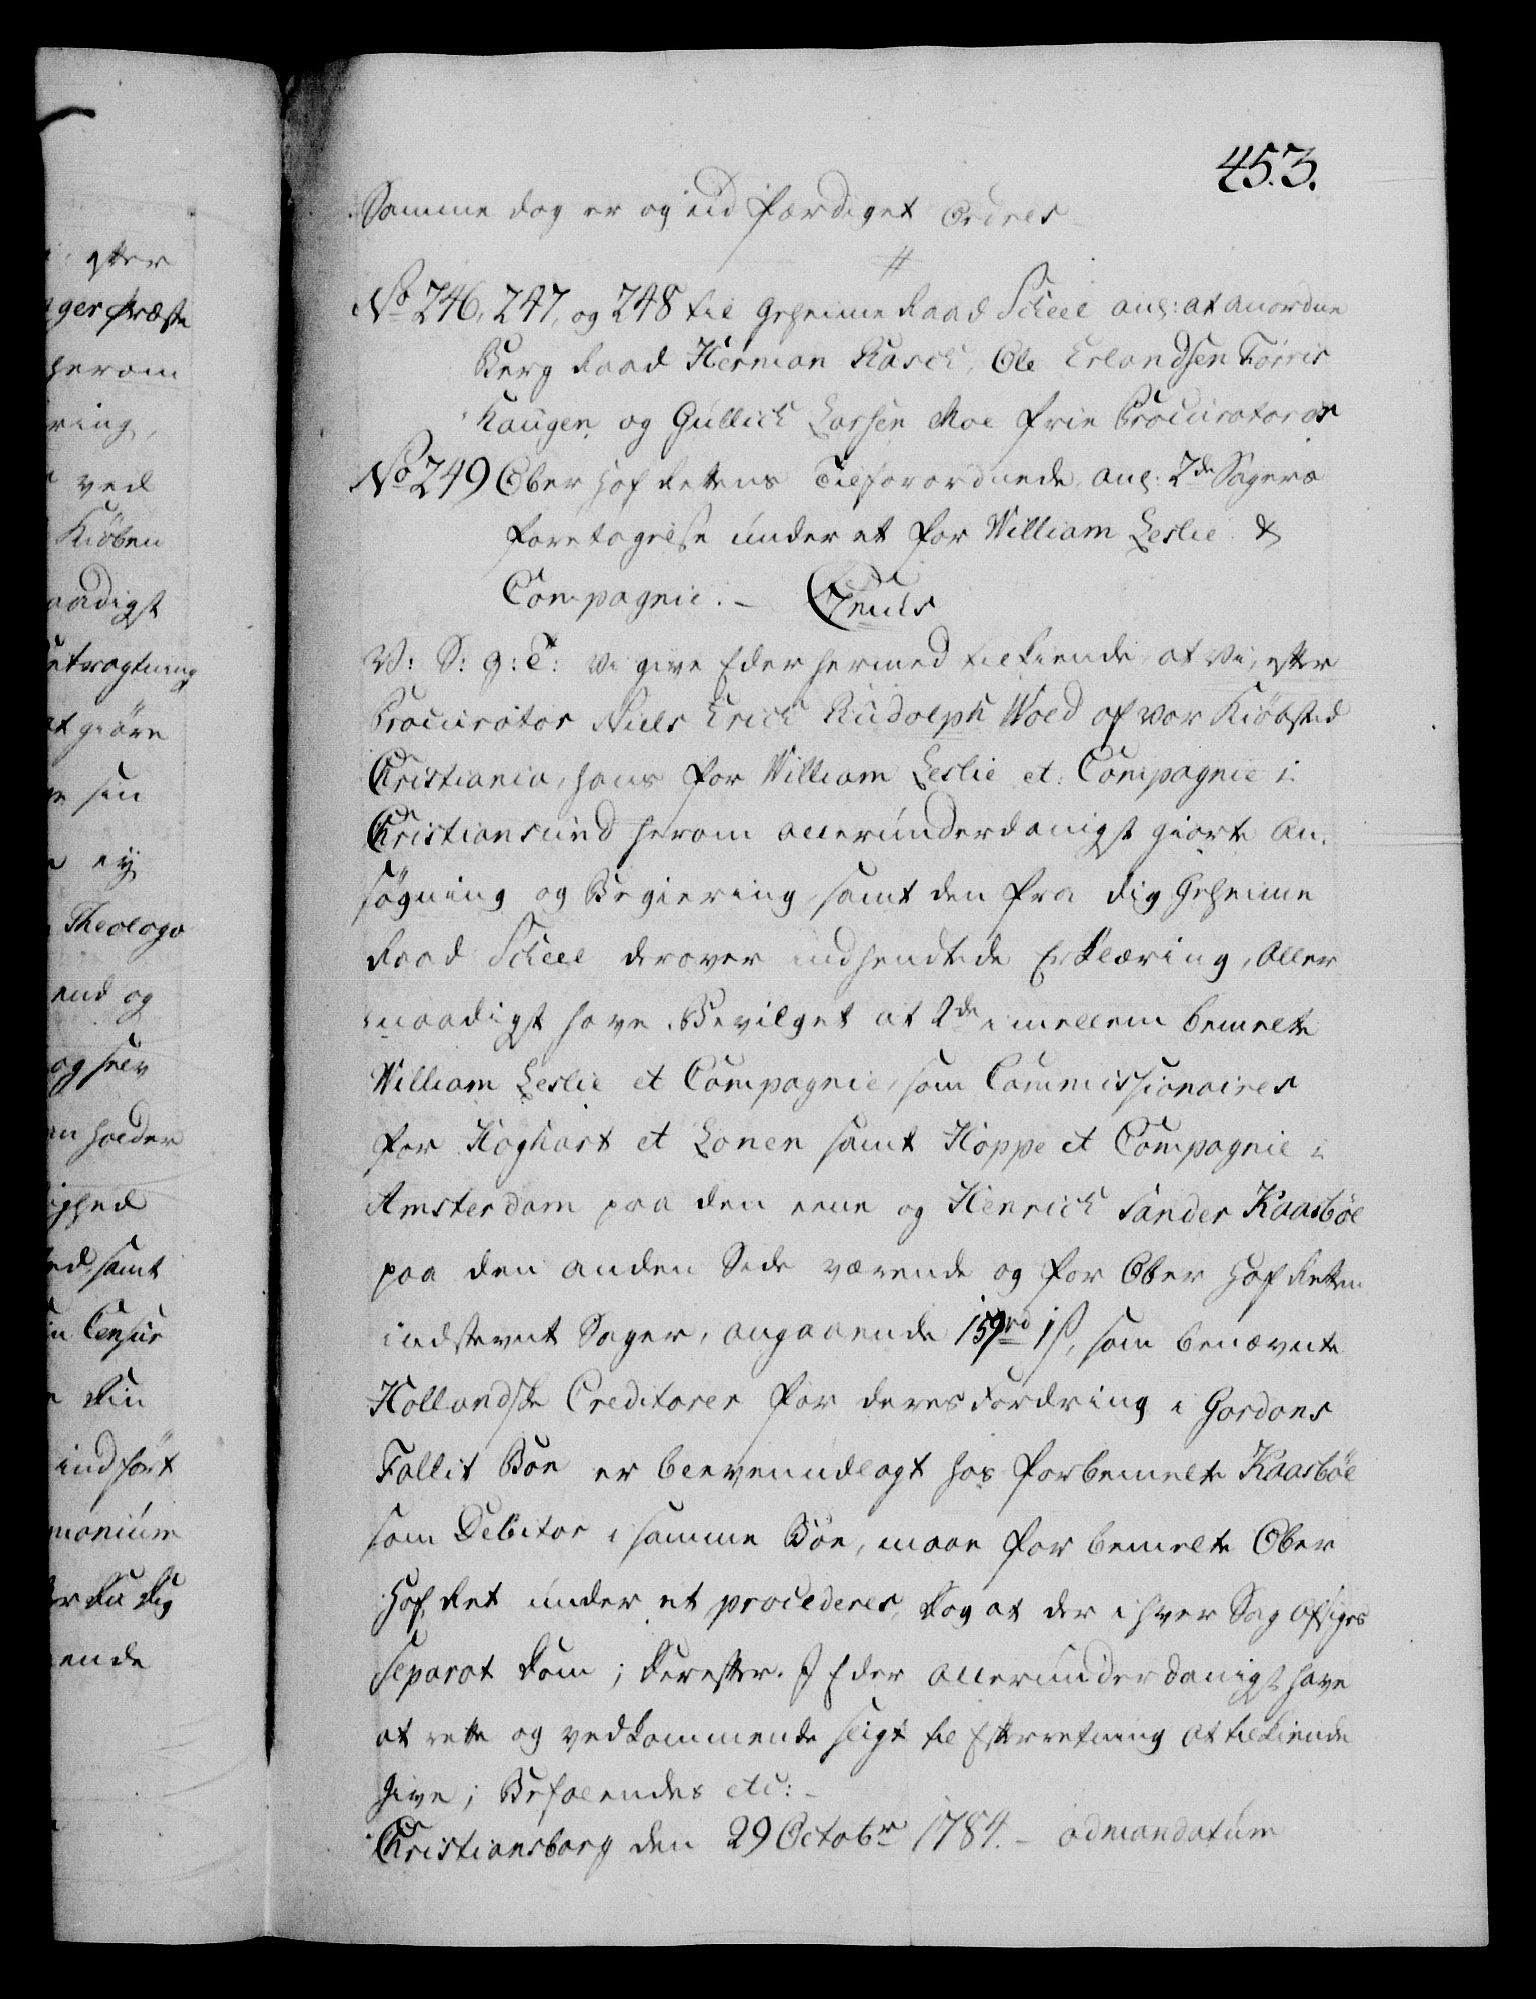 453.
Samme dag er og udfærdiget Ordres
#
No 246, 247, og 248 til Geheime Raad Scheel ang: at anordne
Berg Raad Herman Rasch, Ole Erlandsen Tørris
Haugen og Gullich Larsen Moe frie Procuratorer
No 249 Ober Hof Rettens Tilforordnede, ang: 2de Sagers
foretagelse under et for William Leslie &
Compagnie. –
V: S: G: T: Vi give Eder hermed tilkiende, at Vi, efter
Procurator Niels Erich Rudolph Wold af vor Kiøbsted
Christiania, hans for William Leslie et Compagnie i
Christiansund herom allerunderdanigst giorte An-
søgning og Begiering, samt den fra dig Geheime
Raad Scheel derover indsendtede Erklæring, Aller
naadigst have Bevilget at 2de imellem bemelte
William Leslie et Compagnie, som Commissionaires
for Hoghart et Lonen samt Hoppe et Compagnie i
Amsterdam paa den eene og Henrich Sander Kaasbøe
paa den anden Side værende og for Ober Hof Retten
indstevnte Sager, angaaende 159 rd 1 ß, som benævnte
Hollandske Creditorer for deres Fordring i Gordons
Fallit Boe er beevenudlagt hos forbemelte Kaasbøe
som Debitor i samme Boe, maae for bemelte Ober
Hof Ret under et procederes, dog at der i hver Sag afsiges
separat Dom; Derefter I Eder allerunderdanigst have
at rette og vedkommende sligt til Efterretning at tilkiende
give; Befalendes etc: –
Christiansborg den 29 Octobr 1784. – ad mandatum